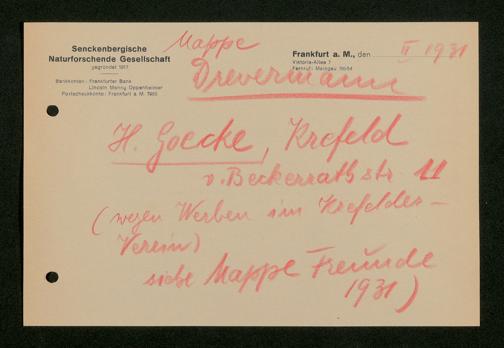 Senckenbergische
Naturforschende Gesellschaft
gegründet 1817
Bankkonten: Frankfurter Bank
Lincoln Menny Oppenheimer
Postscheckkonto: Frankfurt a. M.
Mappe
Frankfurt a. M., den II 1931
Viktoria-Allee 7
Fernruf: Maingau
Drevermann
H. Goecke, Krefeld
v. Beckerrathstr 11
(wegen Werben im Krefelder-
Verein)
siehe Mappe Freunde
1931)